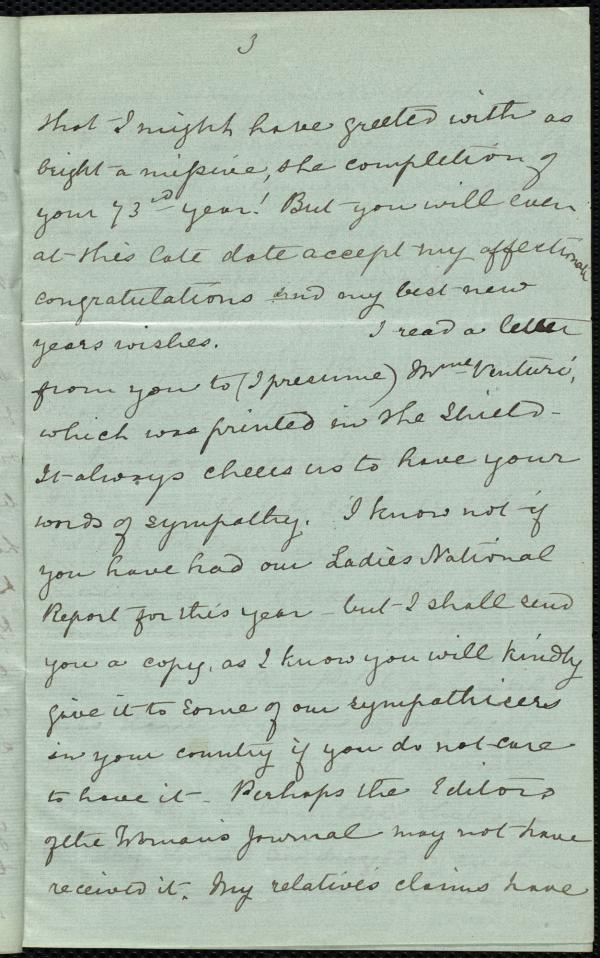 3
that I might have greeted with as
bright a missive, the completion of
your 73rd year! But you will even
at this late date accept my affectionate
congratulations and my best new
years wishes. I read a letter
from you to (I presume) Mme Venturi,
which was printed in the Shield -
It always cheers us to have your
words of sympathy. I know not if
you have had our Ladies National
Report for this year - but I shall send
you a copy, as I know you will kindly
give it to some of our sympathisers
in your country if you do not care
to have it - Perhaps the Editors
of the Woman's Journal may not have
received it. My relative's claims have